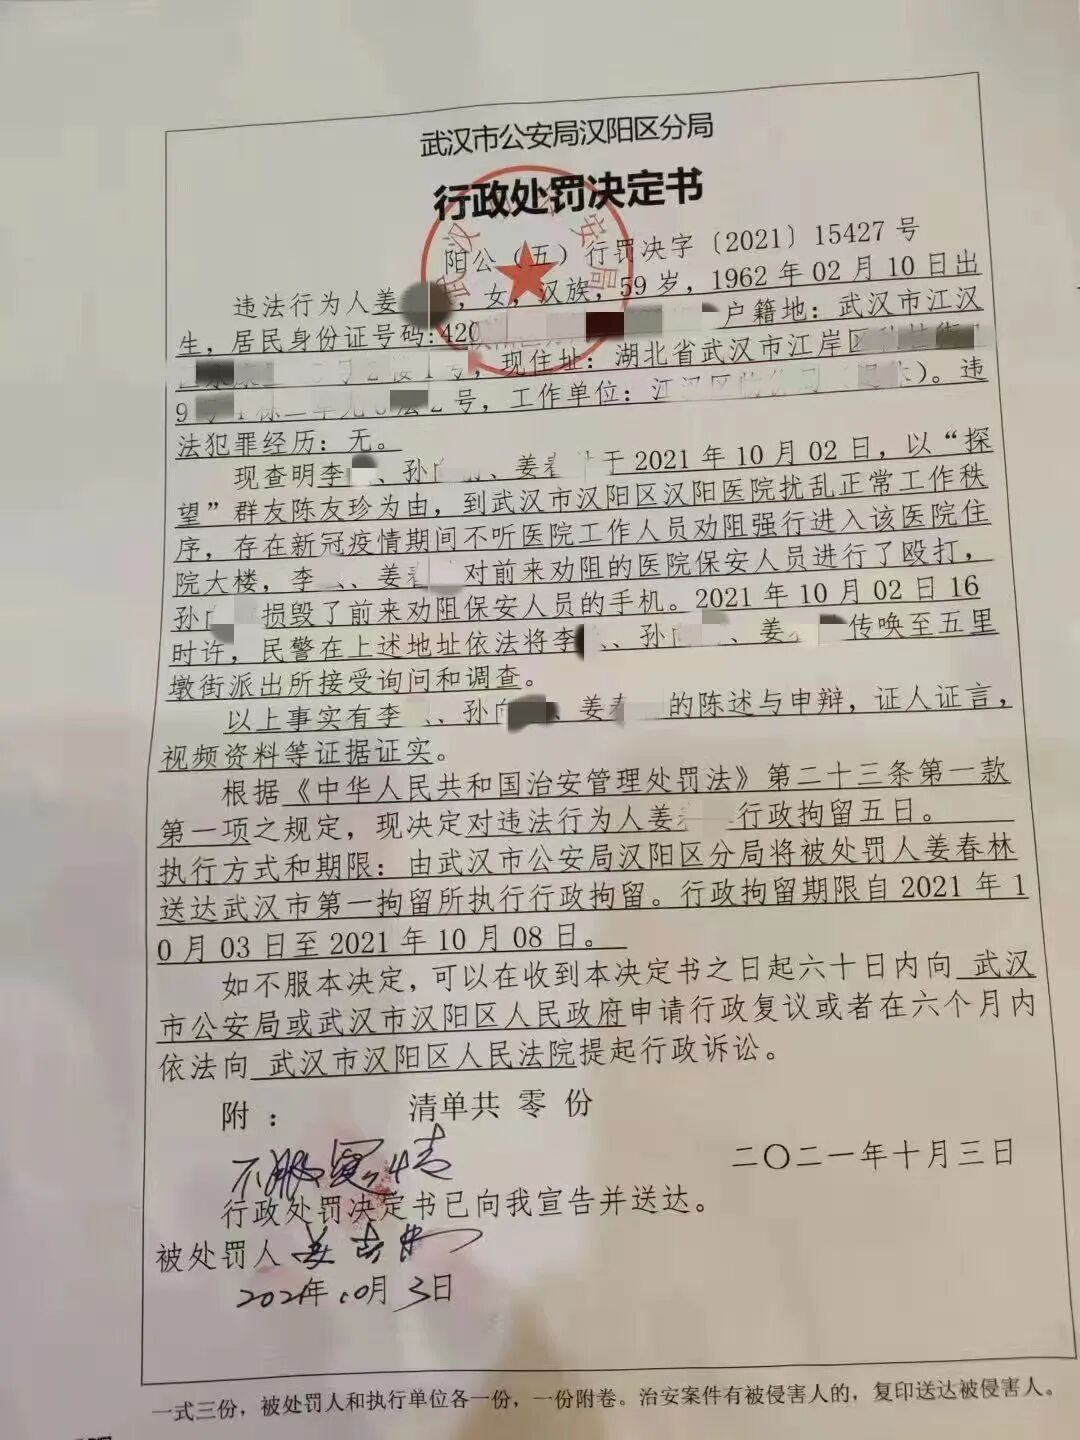 武汉市公安局汉阳区分局
行政处罚决定书
阳公（五）行罚决字〔2021〕15427 号
违法行为人姜，女，汉族，59 岁，1962 年 02 月 10 日出
生，居民身份证号码:420 户籍地：武汉市江汉
号，现住址：湖北省武汉市江岸区
9 号，工作单位： ）。违
法犯罪经历：无。
现查明李、孙、姜春于 2021 年 10 月 02 日，以“探
望”群友陈友珍为由，到武汉市汉阳区汉阳医院扰乱正常工作秩
序，存在新冠疫情期间不听医院工作人员劝阻强行进入该医院住
院大楼，李、姜春对前来劝阻的医院保安人员进行了殴打，
孙损毁了前来劝阻保安人员的手机。2021 年 10 月 02 日 16
时许，民警在上述地址依法将李、孙、姜春传唤至五里
墩街派出所接受询问和调查。
以上事实有李、孙、姜春的陈述与申辩，证人证言，
视频资料等证据证实。
根据《中华人民共和国治安管理处罚法》第二十三条第一款
第一项之规定，现决定对违法行为人姜行政拘留五日。
执行方式和期限：由武汉市公安局汉阳区分局将被处罚人姜春林
送达武汉市第一拘留所执行行政拘留。行政拘留期限自 2021 年 1
0 月 03 日至 2021 年 10 月 08 日。
如不服本决定，可以在收到本决定书之日起六十日内向 武汉
市公安局或武汉市汉阳区人民政府申请行政复议或者在六个月内
依法向 武汉市汉阳区人民法院提起行政诉讼。
附： 清单共 零 份
不服
二〇二一年十月三日
行政处罚决定书已向我宣告并送达。
被处罚人 姜春林
2021年10月3日
一式三份，被处罚人和执行单位各一份，一份附卷。治安案件有被侵害人的，复印送达被侵害人。